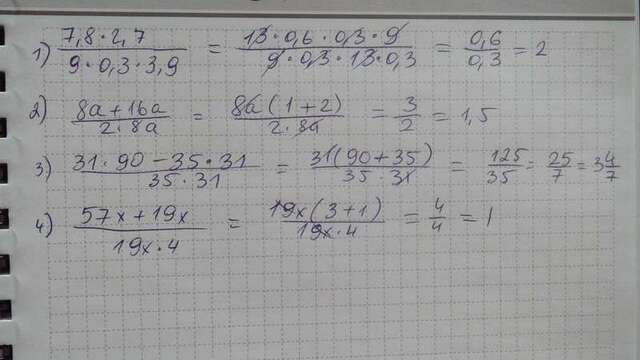 1) 7,8 · 2,7 / 9 · 0,3 · 3,9 = 13 · 0,6 · 0,3 · 9 / 9 · 0,3 · 13 · 0,3 = 0,6 / 0,3 = 2
2) 8a + 16a / 2 · 8a = 8a(1+2) / 2 · 8a = 3 / 2 = 1,5
3) 31 · 90 – 35 · 31 / 35 · 31 = 31(90+35) / 35 · 31 = 125 / 35 = 25 / 7 = 3 4/7
4) 57x + 19x / 19x · 4 = 19x(3+1) / 19x · 4 = 4 / 4 = 1